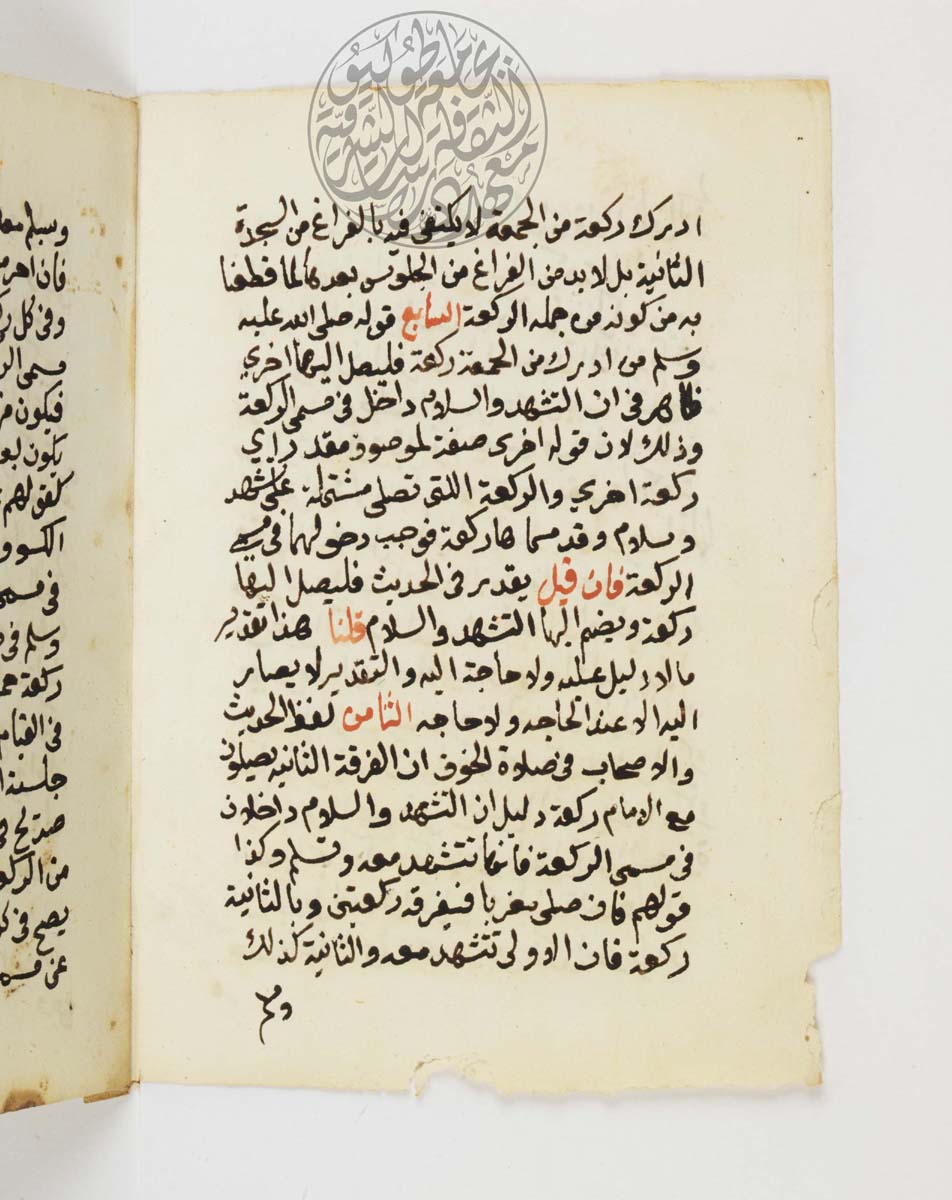 ادرك ركعة من الجمعة لا يكتفى فيه بالفراغ من السجدة
الثانية بل لا بد من الفراغ من الجلوس بعدها لما قطعنا
به من كونه من جمله الركعة السابع قوله صلى الله عليه
وسلم من ادرك من الجمعة ركعة فليصل اليها اخري
ظاهر في ان التشهد والسلام داخل في مسمى الركعة
وذلك لان قوله اخرى صفة لموصوف مقدر اي
ركعة اخري والركعة اللتى تصلى مشتملة على تشهد
وسلام وقد سماها ركعة فوجب دخولهما في مسمى
الركعة فان قيل يقدر في الحديث فليصل اليها
ركعة ويضم اليها التشهد والسلام قلنا هذا تقدير
ما لا دليل عليه ولا حاجة اليه والتقدير لا يصار
اليه الا عند الحاجه ولا حاجه الثامن لفظ الحديث
والاصحاب في صلاة الخوف ان الفرقة الثانيه يصلون
مع الامام ركعة دليل ان التشهد والسلام داخلان
في مسمى الركعة فانها تتشهد معه وتسلم وكذا
قولهم فان صلى مغربا فبفرقه ركعتين وبالثانية
ركعة فان الاولى تتشهد معه والثانية كذلك
وسلم معه
فان
وفى كل
مسمى
فيكون
يكون
كقولهم
في
وسلم في
ركعة
في القيام
جلسة
صريح
من
يصح في
عن